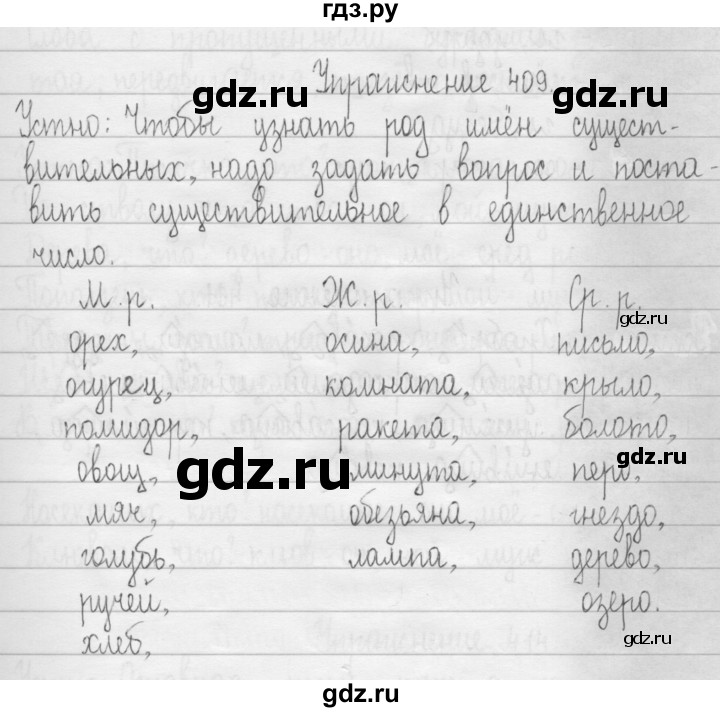 гдз.ру
Упражнение 409.
gdz.ru
gdz.ru
Устно: Чтобы узнать род имён сущест-
вительных, надо задать вопрос и поста-
вить существительное в единственное
число.
М. р. Ж. р. Ср. р.
gdz.ru
орех, осина, письмо,
огурец, комната, крыло,
помидор, ракета, болото,
gdz.ru
овощ, минута, перо,
gdz.ru
мяч, обезьяна, гнездо,
голубь, лампа, дерево,
ручей, озеро.
хлеб,
gdz.ru
gdz.ru